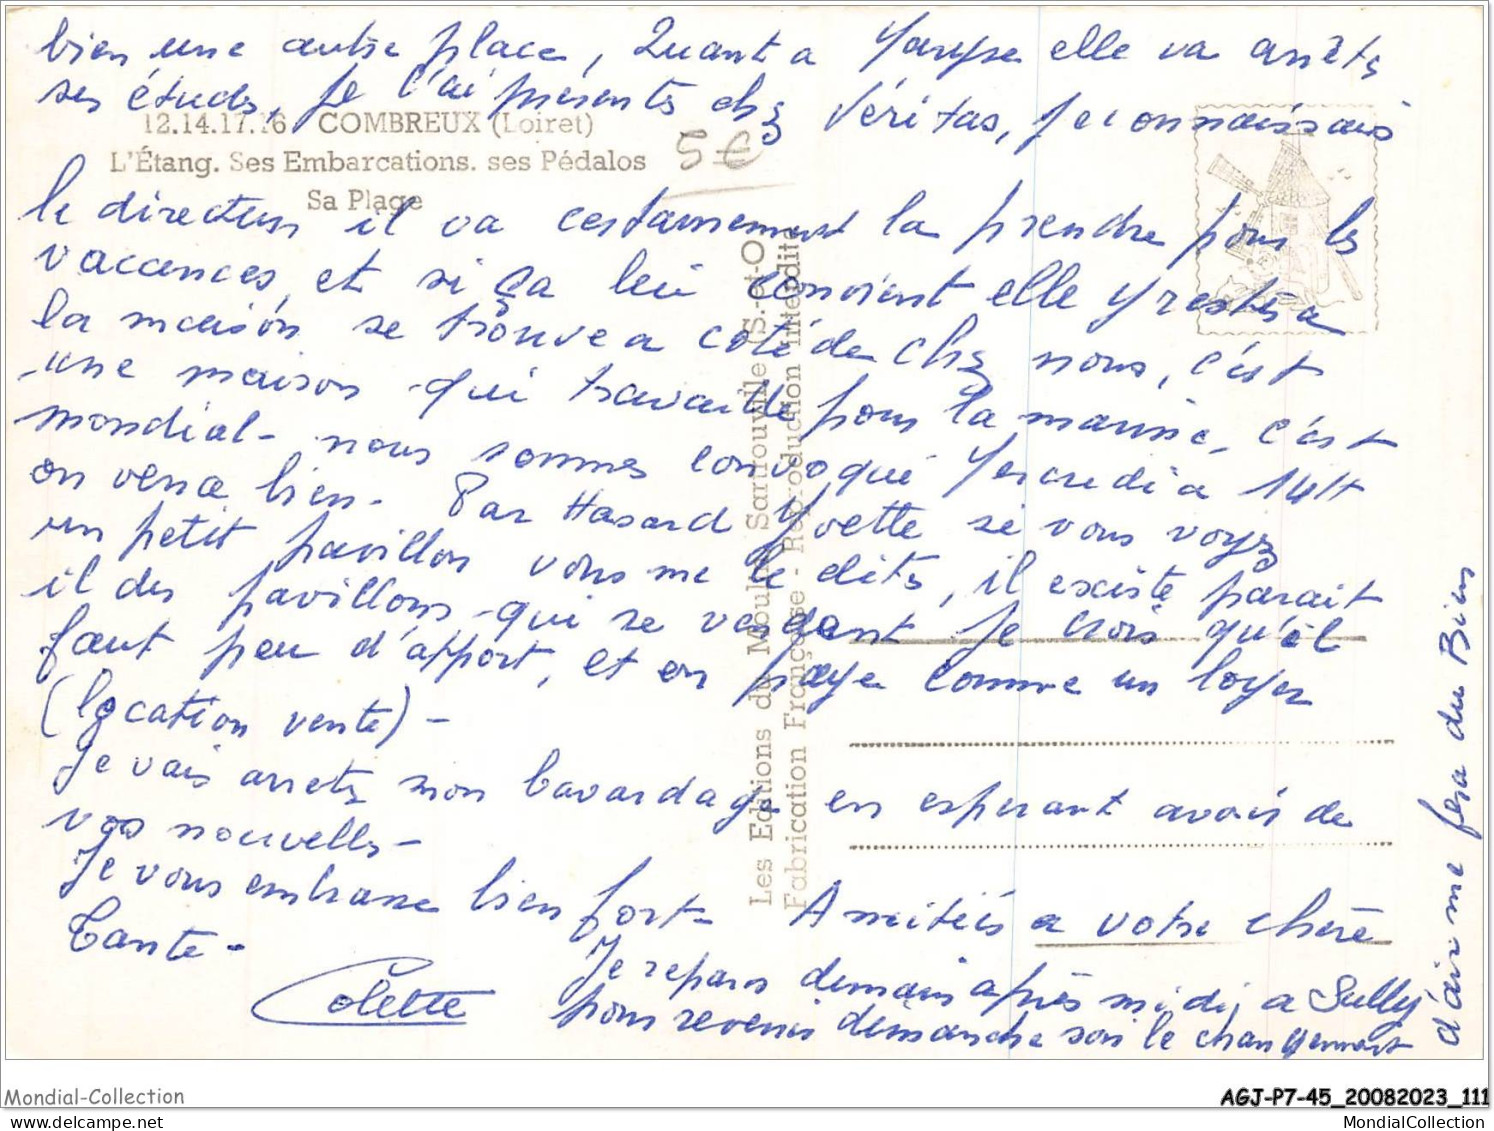 bien une autre place, Quant a elle va arrêter
ses études, je l'ai présenté chez Véritas, je connaissais
12.14.17.16. COMBREUX (Loiret)
L'Étang. Ses Embarcations. ses Pédalos
Sa Plage
5€
le directeur il va certainement la prendre pour les
vaccences, et si ça lui convient elle y restera
la maison se trouve a coté de chez nous, c'est
une maison qui travaille pour la marine, c'est
mondial - nous sommes convoqué a 14H
on verra bien - Par Hasard Yvette si vous voyez
un petit pavillon vous me le dites, il existe parait
il des pavillons qui se vendent je crois qu'il
faut peu d'apport, et on paye comme un loyer
(location vente) -
Je vais arreter mon bavardage en esperant avoir de
vos nouvelles -
Je vous embrasse bien fort - Amitiés a votre chère
Tante -
Colette
Je repars demain après midi a Sully
pour revenir dimanche soir le changement
d'air me fera du Bien
Les Editions du Moulin Sartrouville (S.-et-O
Fabrication Française - Reproduction interdite
Mondial-Collection
AGJ-P7-45_20082023_111
MondialCollection